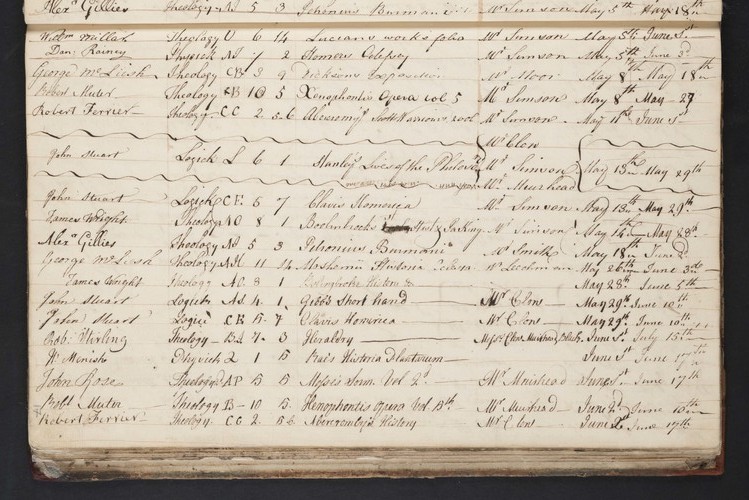 Alexr Gillies Theology N 5 3 Petronius Burmani Mr Simson May 5th May 18th
Willm Millar Theology U 6 14 Lucians works folio Mr Simson May 5th June 1st
Danl Rainey Physick N 7 2 Homers Odyssey Mr Simson May 5th June 3d
George McLeish Theology CB 3 9 Dicksons Exposition Mr Moor May 8th May 18th
Robert Muter Theology B 10 5 Xenophontis Opera vol 5 Mr Simson May 8th May 27
Robert Ferrier Theology CC 2 5.6 Abercromy's Scotts Warriours 2 vol Mr Simson May 11th June 1st
Mr Clon
John Stuart Logick L 6 1 Stanlys Lives of the Philosrs Mr Simson May 13th May 29th
Mr Muirhead
John Stuart Logick CE 5 7 Clavis Homerica Mr Simson May 13th May 29th
James Wright Theology AO 8 1 Bolinbrooks Study & Mr Simson May 14th May 28th
Alexr Gillies Theology N 5 3 Petronius Burmani Mr Smith May 18th June 2d
George McLeish Theology 11 14 Moshemii Historia Eclem May 26th June 3rd
James Wright Theology AO 8 1 Bolingbroke History & May 28th June 5th
John Stuart Logick A.J. 4 1 Gibbs Short hand Mr Clons May 29th June 10th
John Stuart Logick CE 5 7 Clavis Homerica Mr Clons May 29th June 10th
Robt Stirling Theology B 7 3 Heraldry Messrs Clon Muirhead June 1st July 15th
Wm Menish Physick 2 1 15 Rais Historia Plantarum June 1st June 17th
John Rose Theology AP 15 5 Moses's Serm. Vol 2d Mr Muirhead June 1st June 17th
Robt Muter Theology B 10 5 Xenophontis opera Vol 5th Mr Muirhead June 2d June 10th
Robert Ferrier Theology CC 2 5 6 Abercromby's History Mr Clons June 2d June 17th